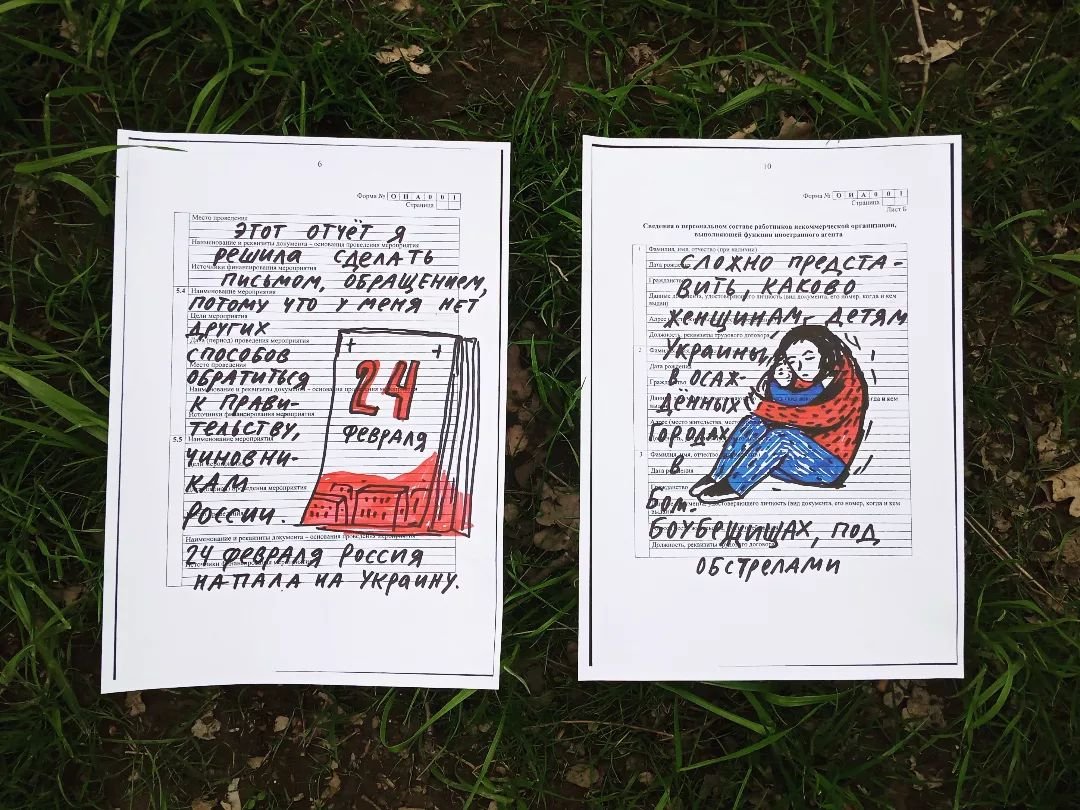 6
Форма № О И А 0 0 1
Страница
Место проведения
ЭТОТ ОТЧЁТ Я
Наименование и реквизиты документа – основания проведения мероприятия
РЕШИЛА СДЕЛАТЬ
Источники финансирования мероприятия
ПИСЬМОМ, ОБРАЩЕНИЕМ,
5.4 Наименование мероприятия
ПОТОМУ ЧТО У МЕНЯ НЕТ
Цели мероприятия
ДРУГИХ
Дата (период) проведения мероприятия
СПОСОБОВ
Место проведения
ОБРАТИТЬСЯ
Наименование и реквизиты документа – основания проведения мероприятия
К ПРАВИ-
Источники финансирования мероприятия
ТЕЛЬСТВУ,
5.5 Наименование мероприятия
ЧИНОВНИ-
КАМ
проведения мероприятия
РОССИИ.
24
ФЕВРАЛЯ
Наименование и реквизиты документа – основания проведения
24 ФЕВРАЛЯ РОССИЯ
Источники финансирования мероприятия
НАПАЛА НА УКРАИНУ.
10
Форма № О И А 0 0 1
Страница
Лист Б
Сведения о персональном составе работников некоммерческой организации,
выполняющей функции иностранного агента
1 Фамилия, имя, отчество (при наличии)
СЛОЖНО ПРЕДСТА-
Дата рождения
Гражданство
ВИТЬ, КАКОВО
Данные документа, удостоверяющего личность (вид документа, его номер, когда и кем
выдан)
ЖЕНЩИНАМ, ДЕТЯМ
Должность, реквизиты трудового договора
2
УКРАИНЫ
Дата рождения
В ОСАЖ-
Гражданство
ДЁННЫХ
Адрес (место жительства, место
ГОРОДАХ,
3 Фамилия, имя, отчество
В
Дата рождения
Гражданство
БОМ-
удостоверяющего личность (вид документа, его номер, когда и кем
БОУБЕЖИЩАХ, ПОД
Должность, реквизиты трудового договора
ОБСТРЕЛАМИ